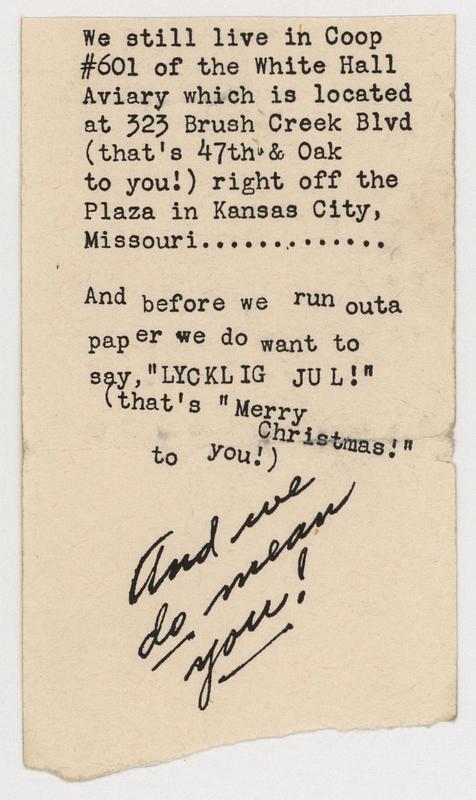 We still live in Coop
#601 of the White Hall
Aviary which is located
at 323 Brush Creek Blvd
(that's 47th & Oak
to you!) right off the
Plaza in Kansas City,
Missouri..............
And before we run outa
paper we do want to
say,"LYCKLIG JUL!"
(that's "Merry
Christmas!"
to you!)
And we
do mean
you!